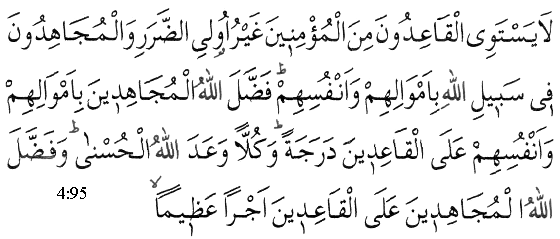 لَا يَسْتَوِى الْقَاعِدُونَ مِنَ الْمُؤْمِنٖينَ غَيْرُ اُولِى الضَّرَرِ وَالْمُجَاهِدُونَ
فٖى سَبٖيلِ اللهِ بِاَمْوَالِهِمْ وَاَنْفُسِهِمْؕ فَضَّلَ اللهُ الْمُجَاهِدٖينَ بِاَمْوَالِهِمْ
وَاَنْفُسِهِمْ عَلَى الْقَاعِدٖينَ دَرَجَةًؕ وَكُلًّا وَعَدَ اللهُ الْحُسْنٰىؕ وَفَضَّلَ
اللهُ الْمُجَاهِدٖينَ عَلَى الْقَاعِدٖينَ اَجْراً عَظٖيماًۙ
4:95